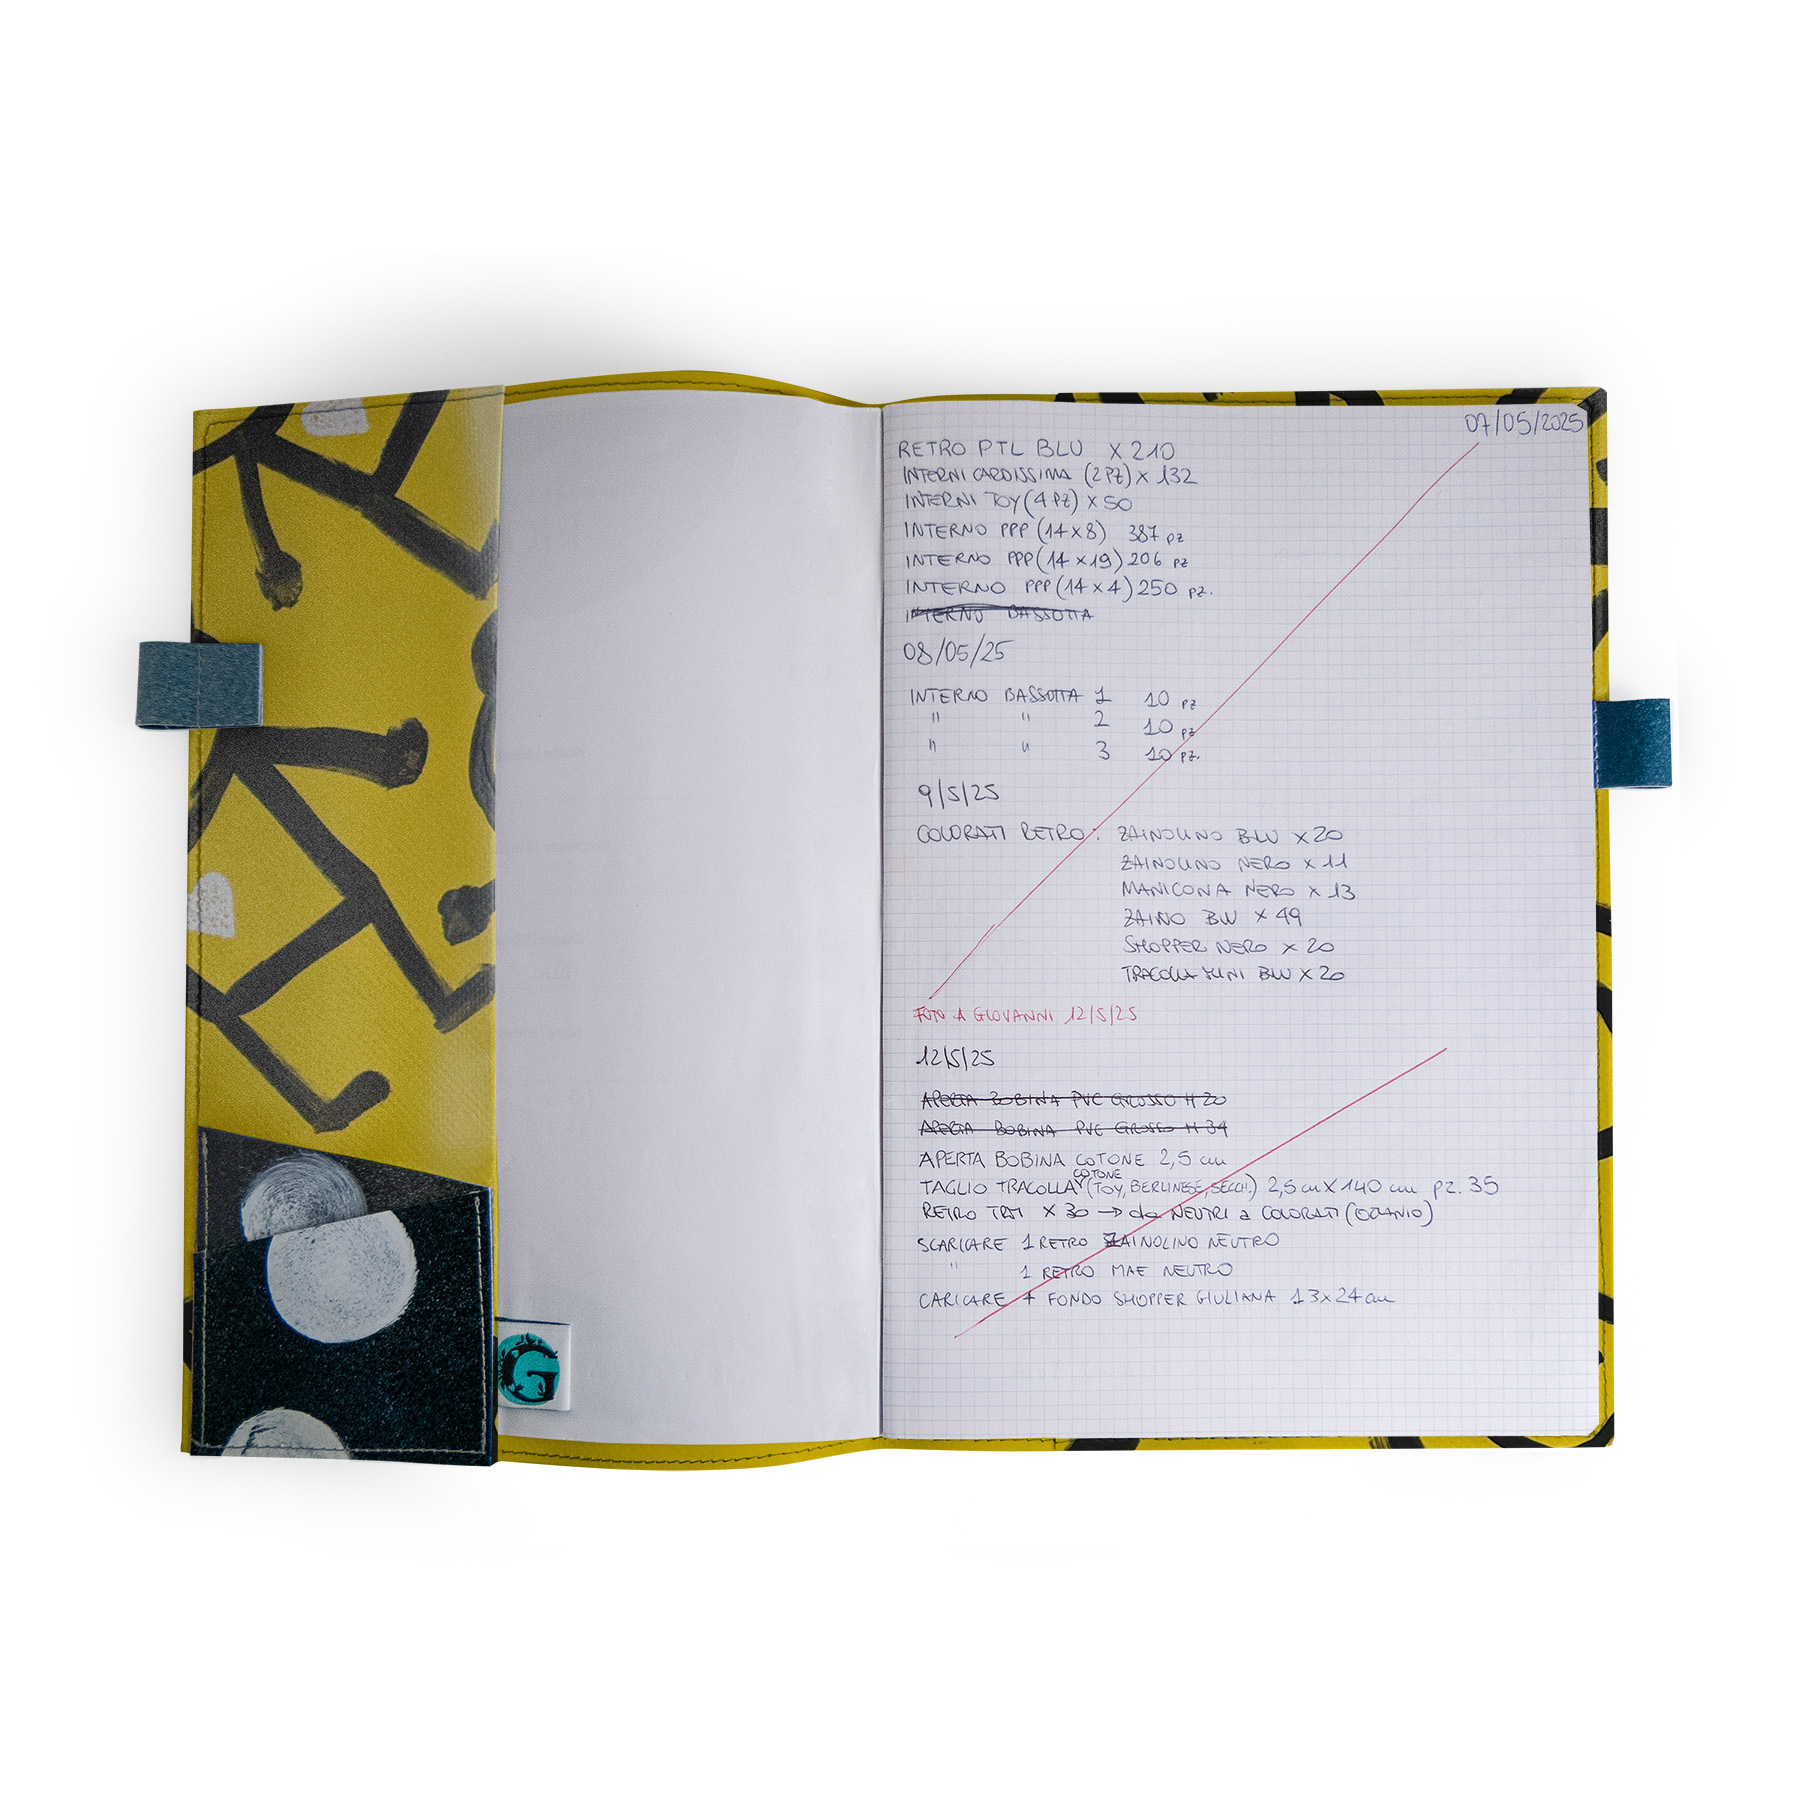 07/05/2025
RETRO PTL BLU X 210
INTERNI CARDISSIMA (2PZ) X 132
INTERNI TOY (4 PZ) X 50
INTERNO PPP (14x8) 387 pz
INTERNO PPP (14x19) 206 pz
INTERNO PPP (14x4) 250 pz.
INTERNO BASSOTTA
08/05/25
INTERNO BASSOTTA 1 10 pz
" " 2 10 pz
" " 3 10 pz.
9/5/25
COLORATI RETRO: ZAINOLINO BLU X 20
ZAINOLINO NERO X 11
MANICONA NERO X 13
ZAINO BLU X 49
SHOPPER NERO X 20
TRACOLLA BLU X 20
FOTO A GIOVANNI 12/5/25
12/5/25
APERTA BOBINA PVC GROSSO H 20
APERTA BOBINA PVC GROSSO H 34
APERTA BOBINA COTONE 2,5 cm
COTONE
TAGLIO TRACOLLA (TOY, BERLINESE, SECCH.) 2,5 cm X 140 cm pz. 35
RETRO X 30 → da NEUTRI a COLORATI (OTTANIO)
SCARICARE 1 RETRO ZAINOLINO NEUTRO
" 1 RETRO MAE NEUTRO
CARICARE + FONDO SHOPPER GIULIANA 13x24 cm
G